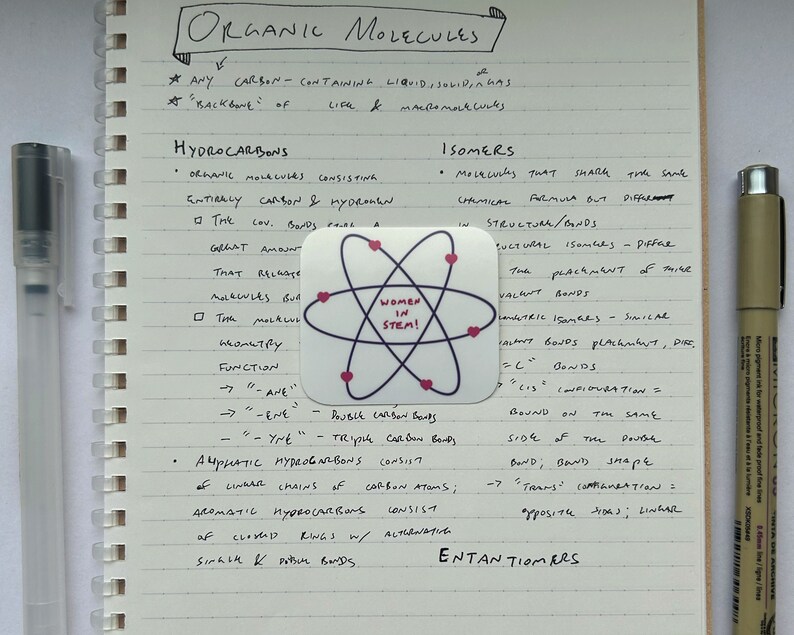 ORGANIC MOLECULES
★ ANY CARBON-CONTAINING LIQUID, SOLID, OR GAS
★ "BACKBONE" OF LIFE & MACROMOLECULES
HYDROCARBONS
• ORGANIC MOLECULES CONSISTING
ENTIRELY CARBON & HYDROGEN
□ THE COV. BONDS STORE A
GREAT AMOUN
THAT RELEASE
MOLECULES BUR
□ THE MOLECUL
GEOMETRY
FUNCTION
→ "-ANE"
→ "-ENE" - DOUBLE CARBON BONDS
- "-YNE" - TRIPLE CARBON BONDS
• ALIPHATIC HYDROCARBONS CONSIST
OF LINEAR CHAINS OF CARBON ATOMS;
AROMATIC HYDROCARBONS CONSIST
OF CLOSED RINGS W/ ALTERNATING
SINGLE & DOUBLE BONDS
ISOMERS
• MOLECULES THAT SHARE THE SAME
CHEMICAL FORMULA BUT DIFFER
IN STRUCTURE/BONDS
UCTURAL ISOMERS - DIFFER
THE PLACEMENT OF THEIR
VALENT BONDS
OMETRIC ISOMERS - SIMILAR
VALENT BONDS PLACEMENT, DIFF.
=C" BONDS
→ "CIS" CONFIGURATION =
BOUND ON THE SAME
SIDE OF THE DOUBLE
BOND; BEND SHAPE
→ "TRANS" CONFIGURATION =
OPPOSITE SIDES; LINEAR
ENTANTIOMERS
WOMEN
IN
STEM!
MICRON 05
Micro pigment ink for waterproof and fade proof fine lines
Encre à micro pigments résistante à l'eau et à la lumière
XSDK05#49
0.45mm line / ligne / línea